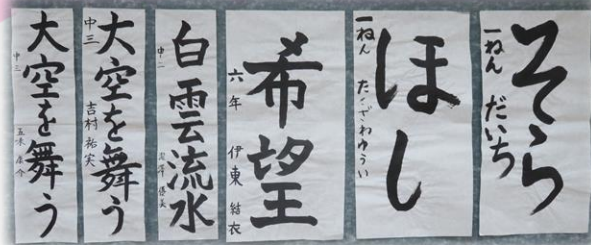 そら
一ねん だいち
ほし
一ねん たきざわゆうい
希望
六年 伊東 結衣
白雲流水
中二
大空を舞う
中三 吉村 祐実
大空を舞う
中三